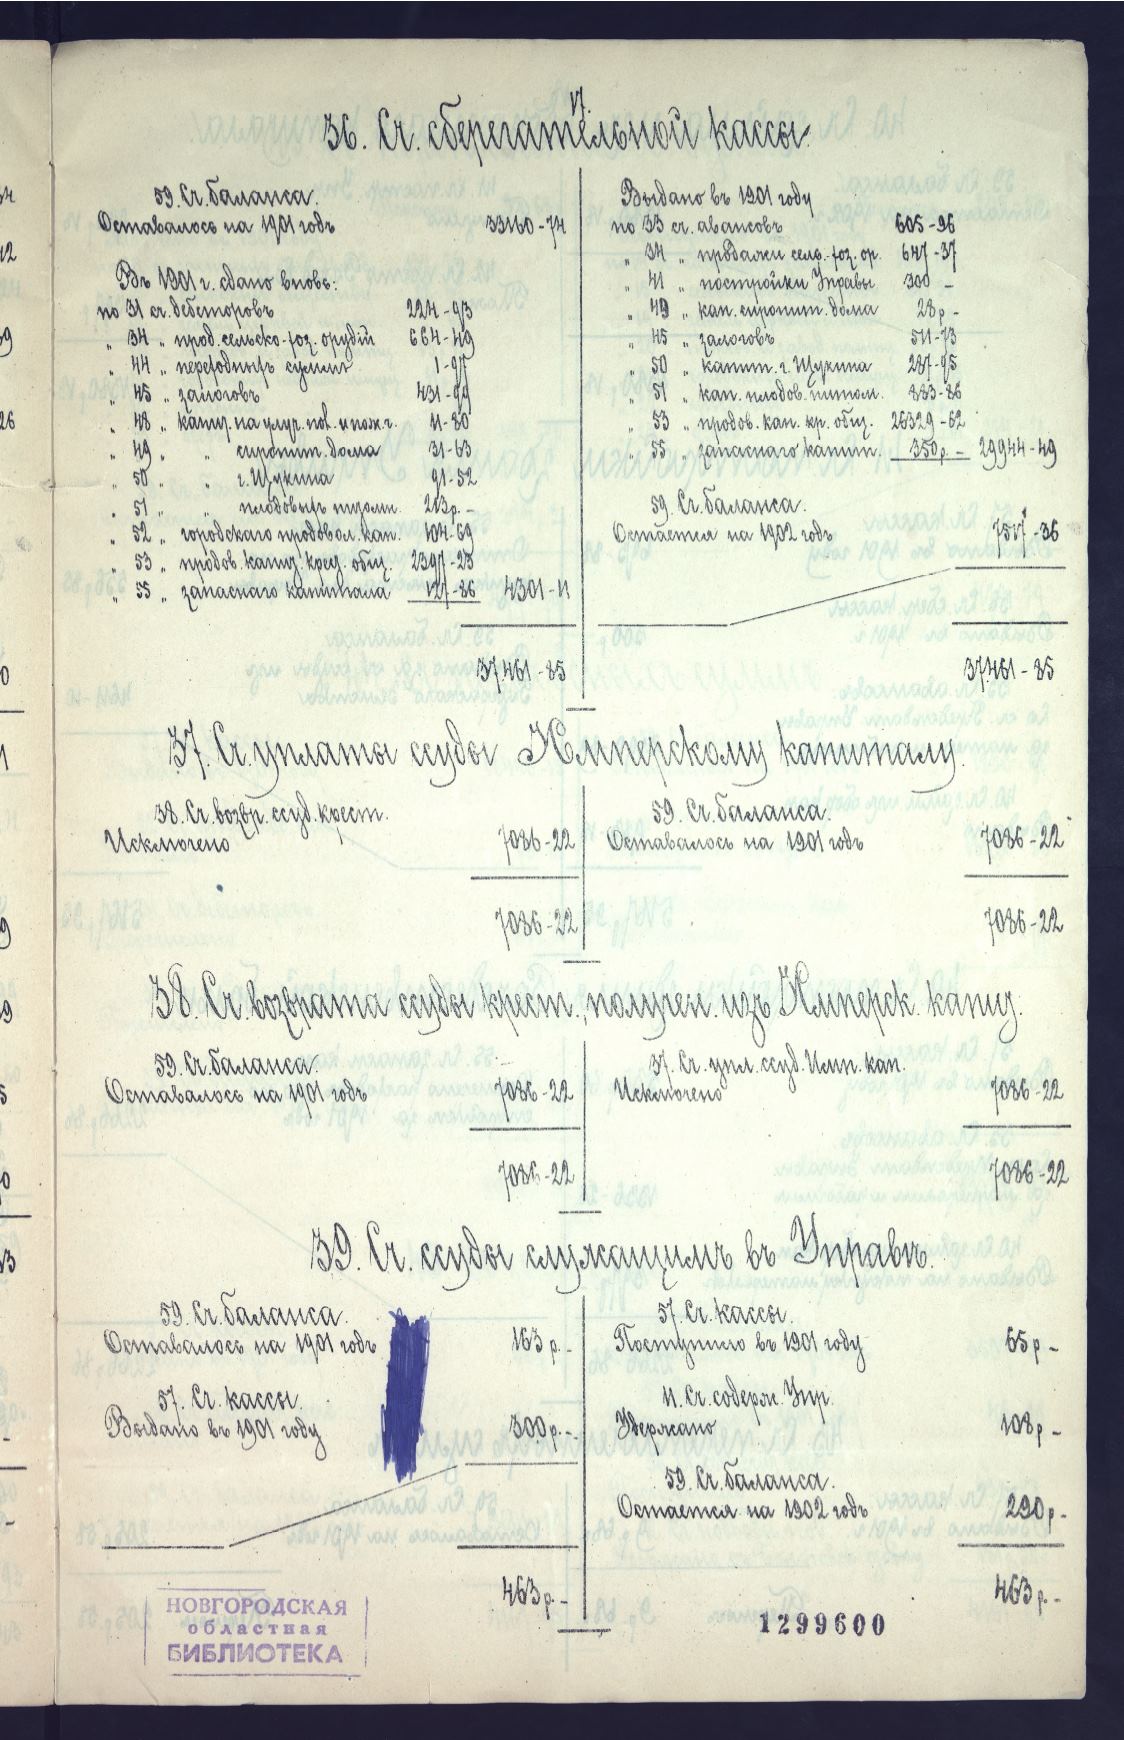 17.
36. Сч. сберегательной кассы.
59. Сч. баланса.
Оставалось на 1901 годъ 33160-74
Въ 1901 г. сдано вновь:
по 31 сч. дебиторовъ 224-93
„ 34 „ прод. сельско-хоз. орудій 664-49
„ 44 „ переходныхъ суммъ 1-97
„ 45 „ залоговъ 431-99
„ 48 „ капит. на улуч. пов. и пож. г. 11-80
„ 49 „ „ сиропит. дома 31-63
„ 50 „ г. Щукина 91-52
„ 51 „ „ плодовыхъ питомн. 213р.-
„ 52 „ городского продовол. кап. 104-69
„ 53 „ продов. капит. крест. общ. 2397-23
„ 55 „ запаснаго капитала 127-86 4301-11
37.461-85
Выдано въ 1901 году
по 33 сч. авансовъ 605-96
„ 34 „ продажи сель.-хоз. ор. 647-37
„ 41 „ постройки Управы 300 -
„ 49 „ кап. сиропит. дома 28р -
„ 45 „ залоговъ 511-73
„ 50 „ капит. г. Щукина 287-95
„ 51 „ кап. плодов. питом. 883-86
„ 53 „ продов. кап. кр. общ. 26329-62
„ 55 „ запаснаго капит. 350р - 29944-49
59. Сч. баланса.
Остается на 1902 годъ 7517-36
37.461-85
37. Сч. уплаты ссуды Имперскому капиталу.
38. Сч. возвр. ссуд. крест.
Исключено 7086-22
7086-22
59. Сч. баланса.
Оставалось на 1901 годъ 7086-22
7086-22
38. Сч. возврата ссуды крест., получен. изъ Имперск. капит.
59. Сч. баланса.
Оставалось на 1901 годъ 7086-22
7086-22
37. Сч. упл. ссуд. Имп. кап.
Исключено 7086-22
7086-22
39. Сч. ссуды служащимъ въ Управѣ.
59. Сч. баланса.
Оставалось на 1901 годъ 163 р. -
57. Сч. кассы.
Выдано въ 1901 году 300р. -
463р. -
57. Сч. кассы.
Поступило въ 1901 году 65р -
11. Сч. содерж. Упр.
Удержано 108р -
59. Сч. баланса.
Остается на 1902 годъ 290р -
463р. -
НОВГОРОДСКАЯ
областная
БИБЛИОТЕКА
1299600